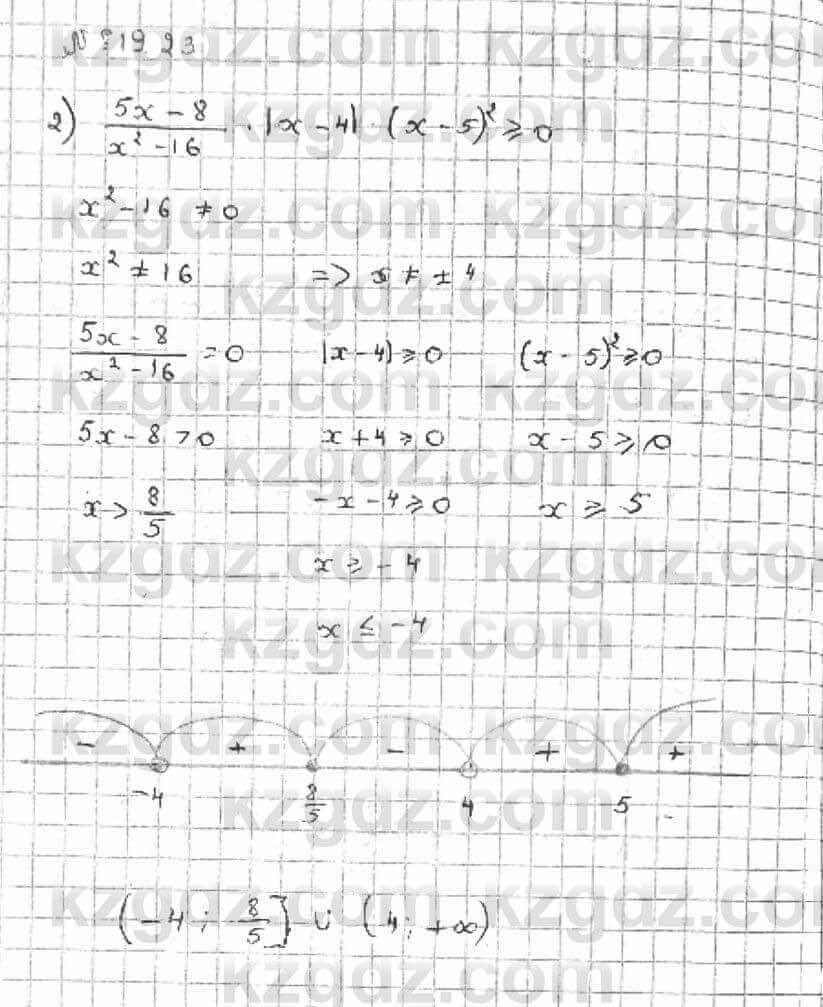 N 19 23
2) (5x - 8)/(x² - 16) · |x - 4| · (x - 5)² ⩾ 0
x² - 16 ≠ 0
x² ≠ 16 => x ≠ ± 4
(5x - 8)/(x² - 16) = 0 |x - 4| ⩾ 0 (x - 5)² ⩾ 0
5x - 8 > 0 x + 4 ⩾ 0 x - 5 ⩾ 0
x > 8/5 - x - 4 ⩾ 0 x ⩾ 5
x ⩾ - 4
x ≤ - 4
- + - + +
-4 8/5 4 5
(-4 ; 8/5] ∪ (4; +∞)
kzgdz.com